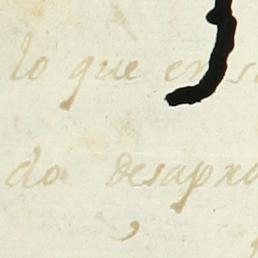 lo que en s
do desapro